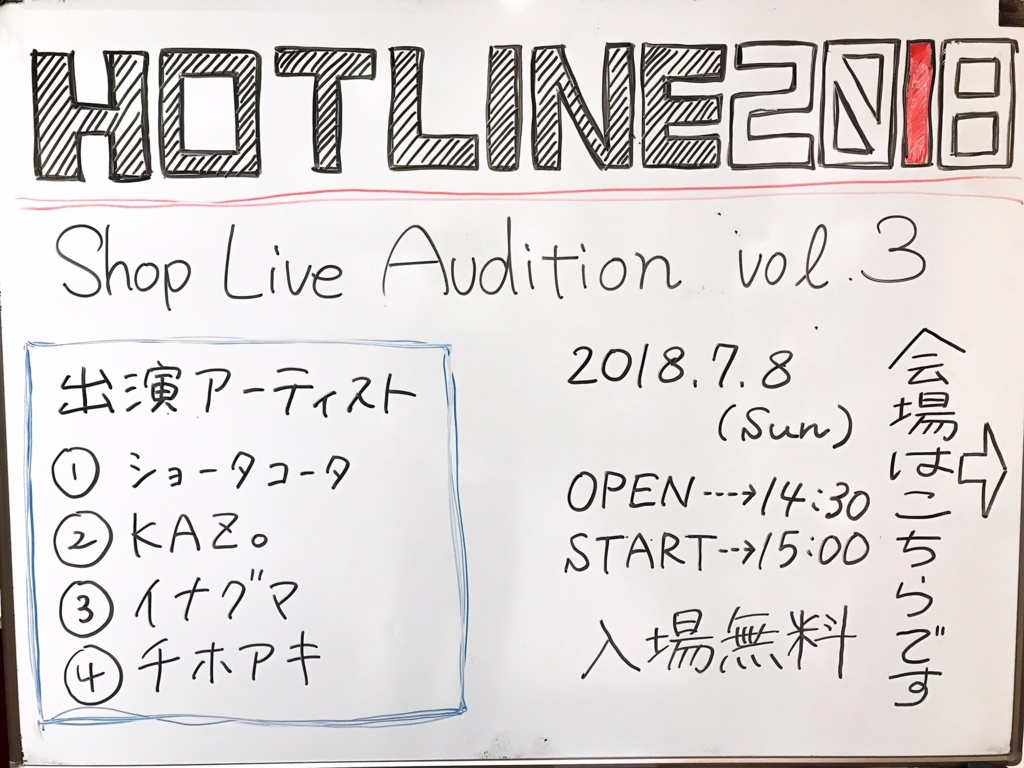 HOTLINE2018
Shop Live Audition vol.3
出演アーティスト
① ショータコータ
② KAZ。
③ イナグマ
④ チホアキ
2018.7.8
(Sun)
OPEN---→14:30
START--→15:00
入場無料
会場はこちらです